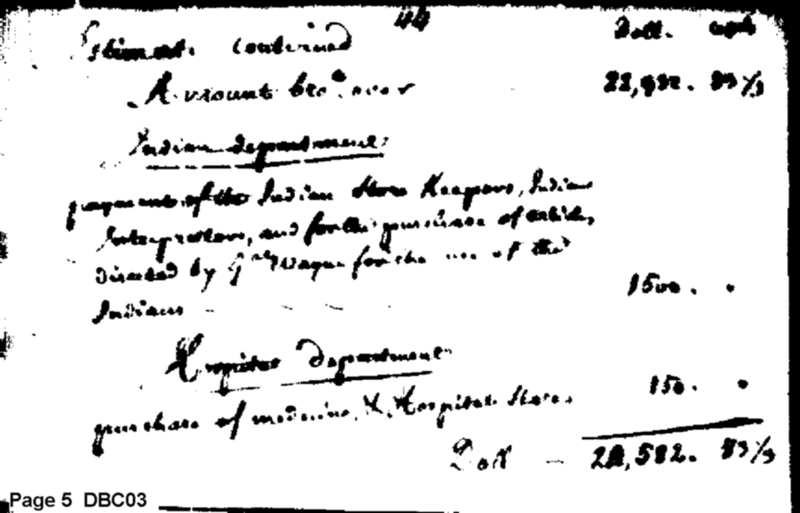 44
Estimate continued Doll. cents
Amount bro.t over 22,932.
Indian department
payment of the Indian Store Keepers, Indian
Interpreters, and for the purchase of articles,
directed by G.al Wayne for the use of the
Indians 1500.
Hospital department
purchase of medicine, & Hospital Stores 150.
Doll — 24,582.
Page 5 DBC03